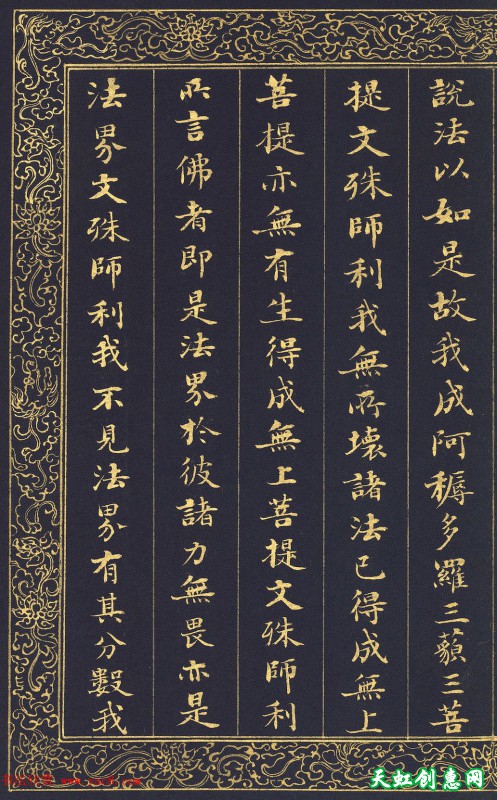 說法以如是故我成阿耨多羅三藐三菩
提文殊師利我無所壞諸法已得成無上
菩提亦無有生得成無上菩提文殊師利
所言佛者即是法界於彼諸力無畏亦是
法界文殊師利我不見法界有其分數我
天虹创惠网